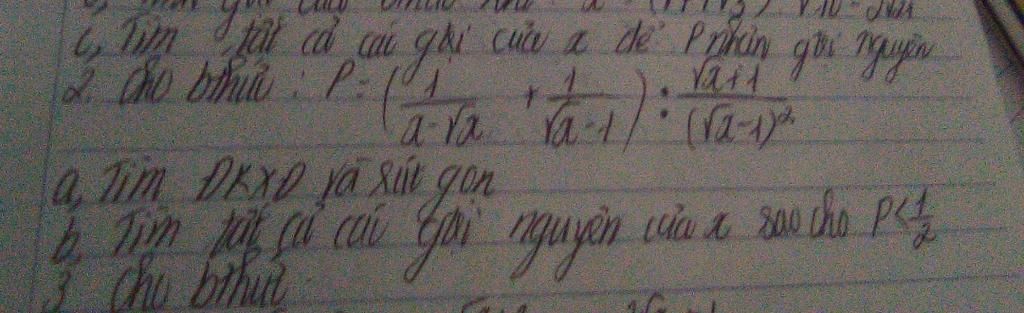 c, Tìm tất cả các gtri của x để P nhận gtri nguyên
2. Cho bthức : P = (1/(x-√x) + 1/(√x-1)) : (√x+1)/(√x-1)²
a, Tìm ĐKXĐ và rút gọn
b, Tìm tất cả các gtri nguyên của x sao cho P < 1/2
3 Cho bthức